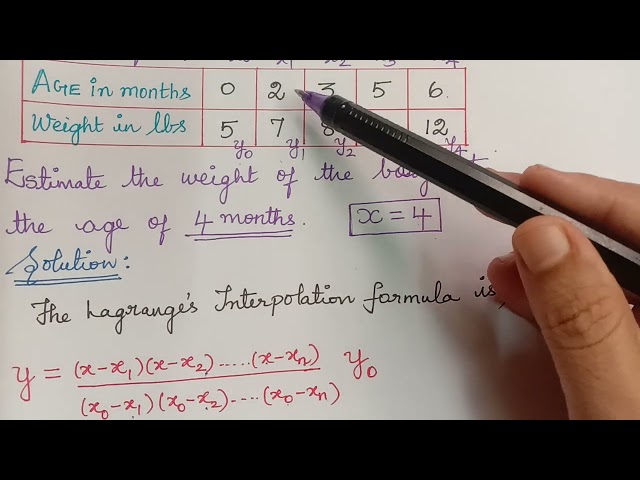 x₁ x₂ x₄
AGE in months 0 2 3 5 6
Weight in lbs 5 7 8 12
y₀ y₁ y₂ y₄
Estimate the weight of the
the age of 4 months. x = 4
Solution:
The Lagrange's Interpolation formula is,
y = (x-x₁)(x-x₂).....(x-xₙ) y₀
(x₀-x₁)(x₀-x₂)....(x₀-xₙ)